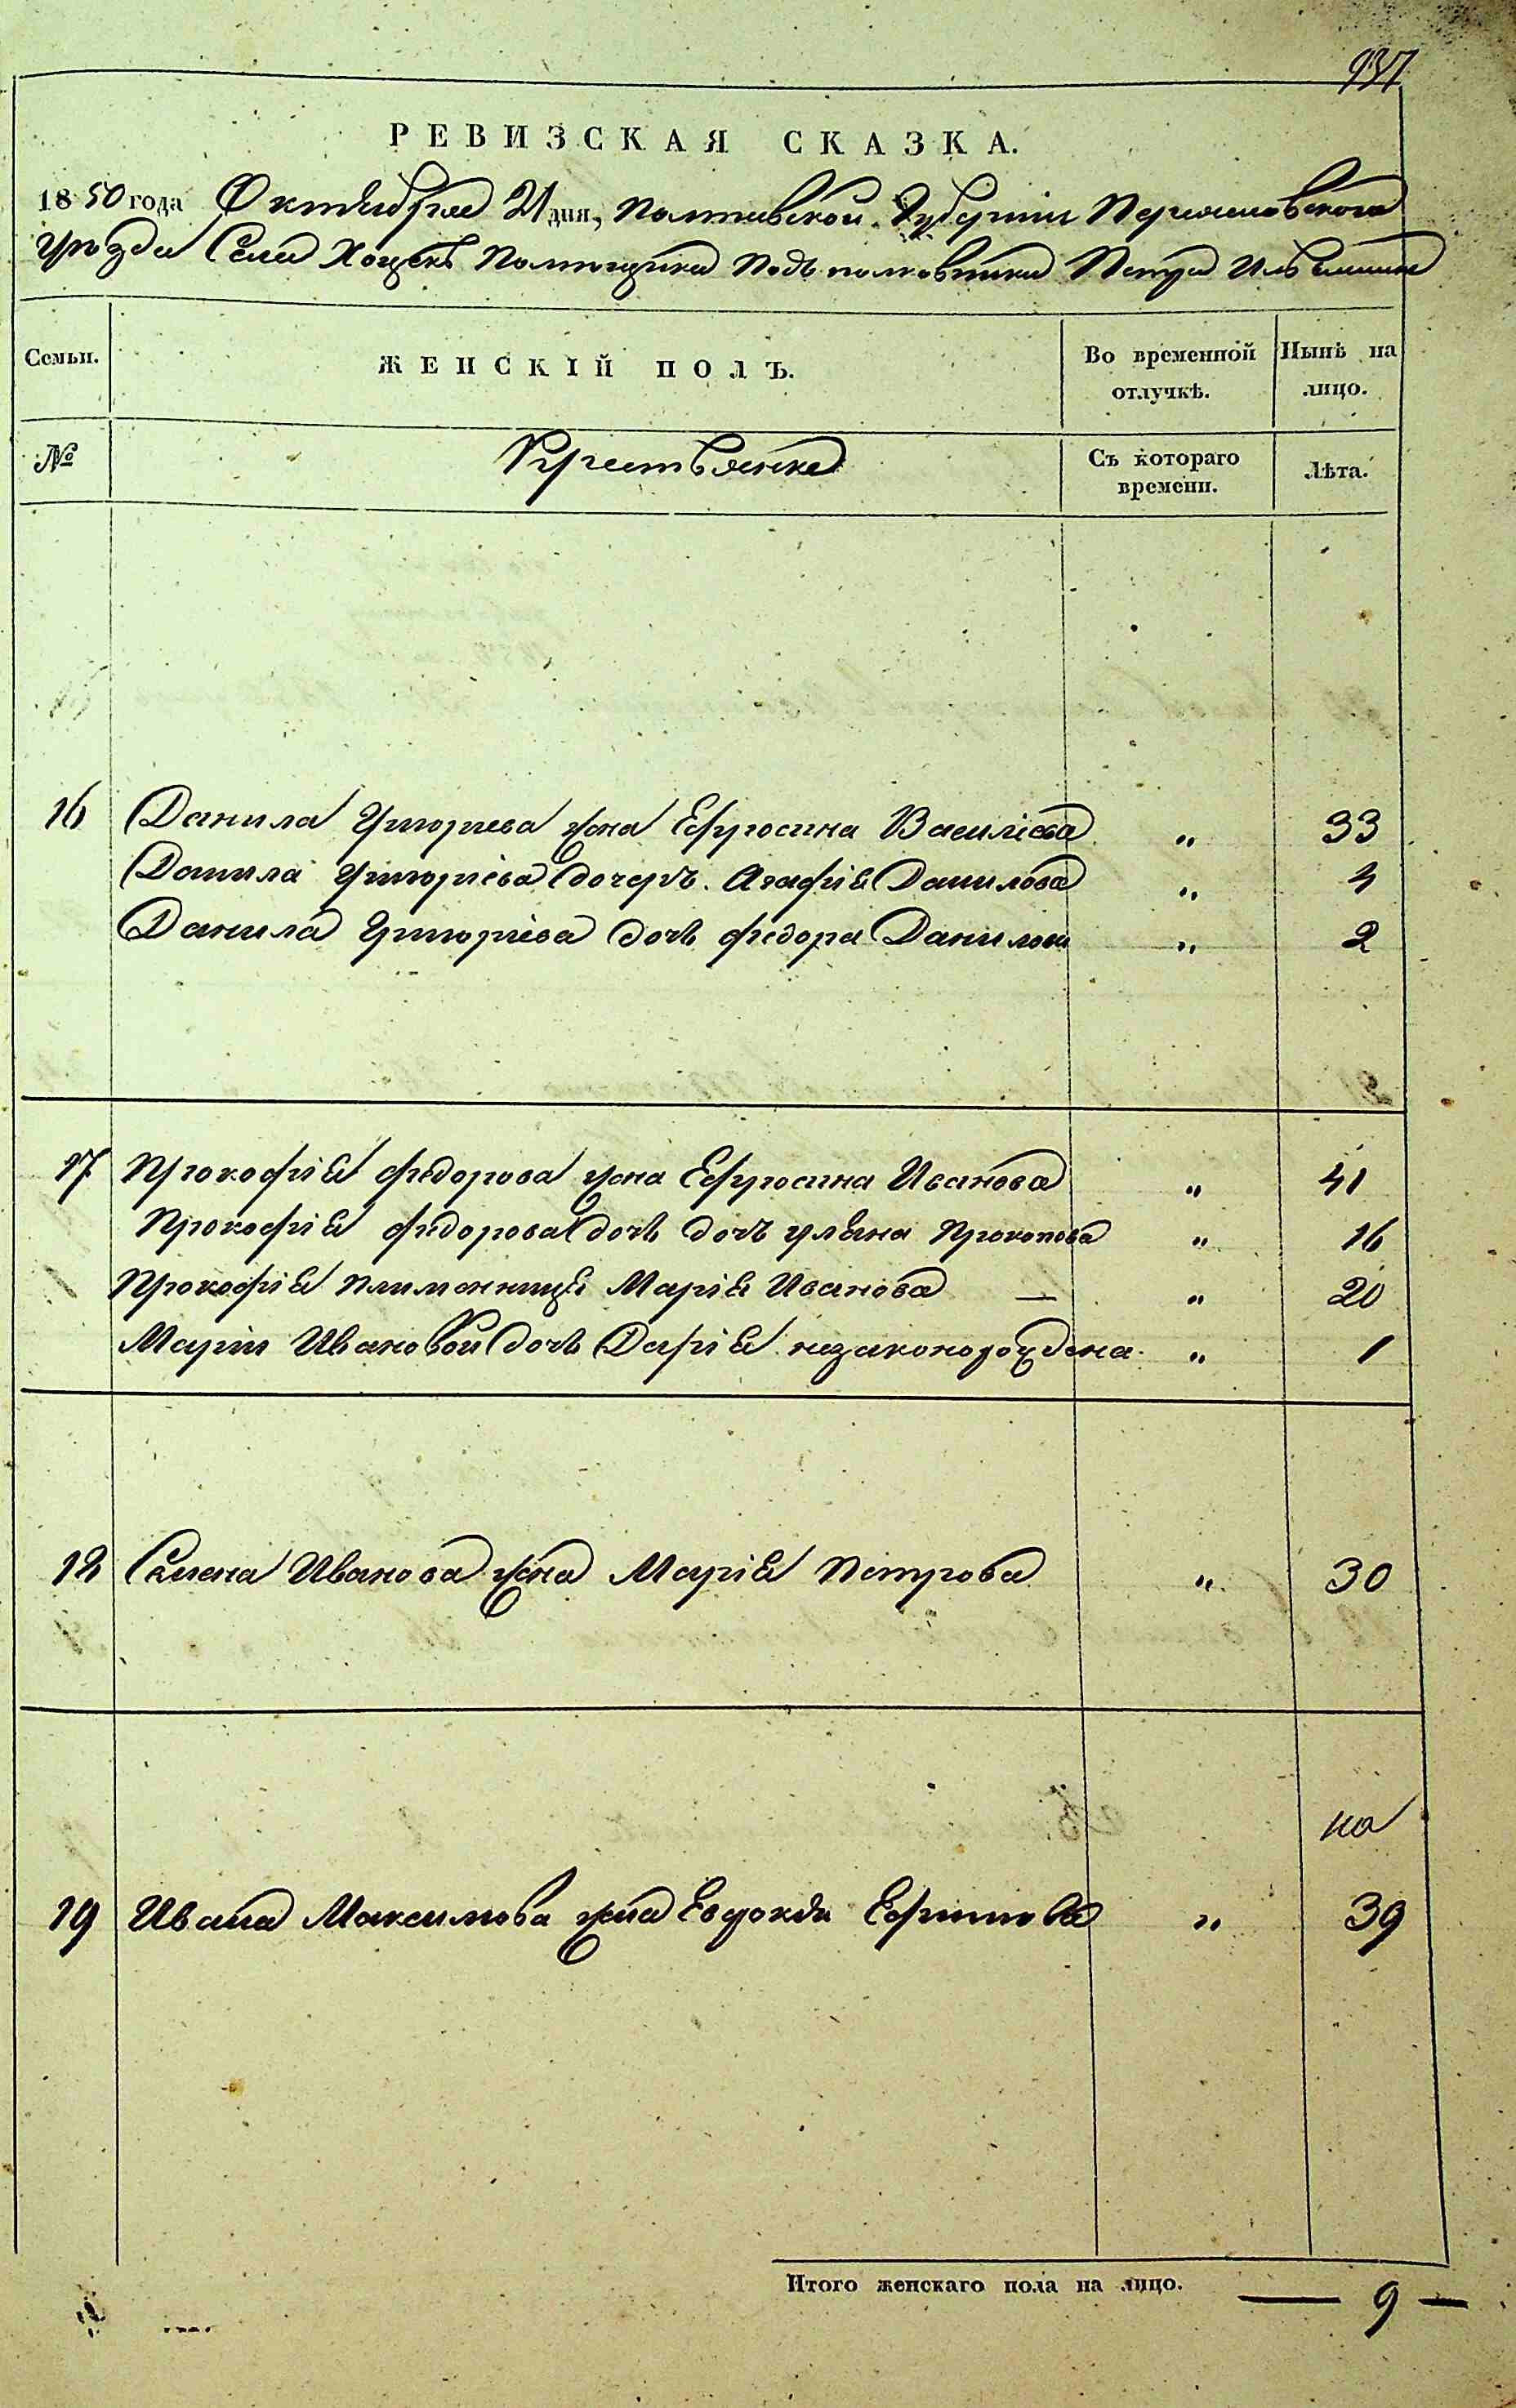 937
РЕВИЗСКАЯ СКАЗКА.
1850 года Октября 21 дня, Полтавской Губернии Переяславского
уезда Села Хоцекъ Помещика Подполковника Петра Ильяшенка
Семьи. ЖЕНСКІЙ ПОЛЪ. Во временной отлучкѣ. Нынѣ на лицо.
№ Крестьянка Съ котораго времени. Лѣта.
16 Данила Григориева жена Ефросина Василіева „ 33
Данила Григоріева дочеръ Агафія Данилова „ 4
Данила Григоріева дочь Федора Данилова „ 2
17 Прокофія Федорова жена Ефросина Иванова „ 41
Прокофія Федорова дочь дочь Уляна Прокопова „ 16
Прокофія племянница Марія Иванова — „ 20
Маріи Ивановой дочь Дарія незаконорождена „ 1
18 Семена Иванова жена Марія Петрова „ 30
на
19 Ивана Максимова жена Евдокія Ефимова „ 39
Итого женскаго пола на лицо. — 9 —